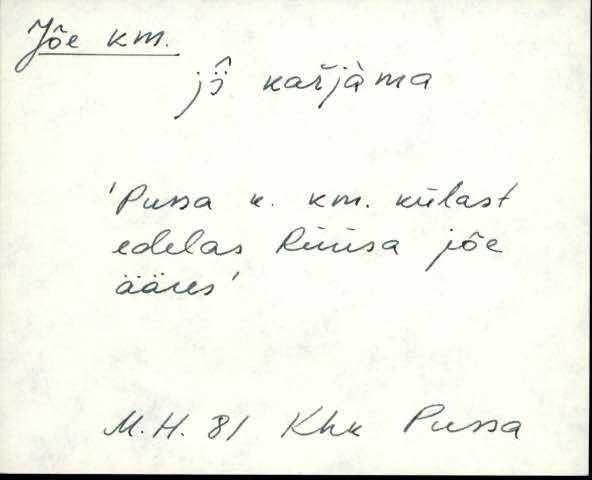 Jõe km.
jȋ̮ kar̆jàma
'Pussa k. km. külast
edelas Riiusa jõe
ääres'
M.H. 81 Khk Pussa